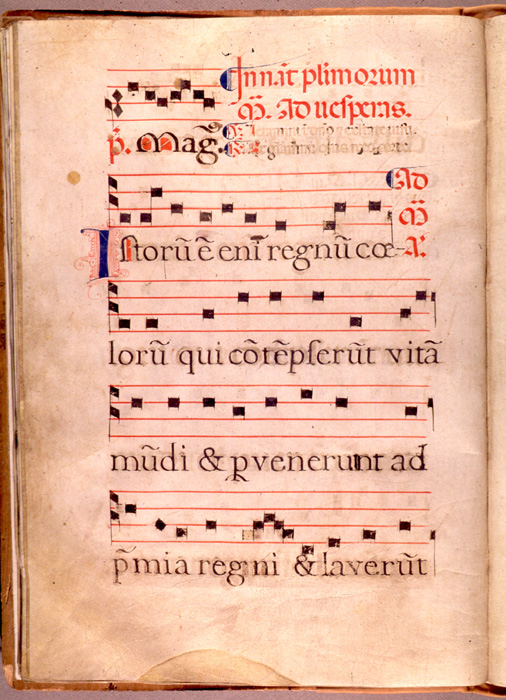 In nat̄ plimorum
M̄. Ad uesperas.
p̄. Mag̃.
Ad
M̄
Istorū ē enī regnū cœ- A.
lorū qui cōtēpserūt vitā
mūdi & pvenerunt ad
p̄mia regni & laverūt